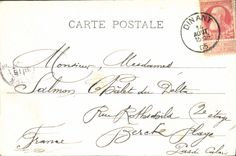 CARTE POSTALE
DINANT
AOUT
05
Monsieur Mesdames
Salmon Châlet du Delta
Rue Rothschild 2e étage
Berck Plage
France Pas de Calais